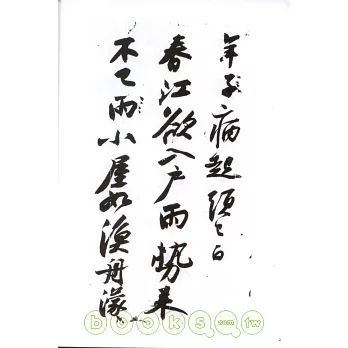 年子病起須已白
春江欲入戶雨勢來
不已雨小屋如漁舟濛
booksqa.com.tw